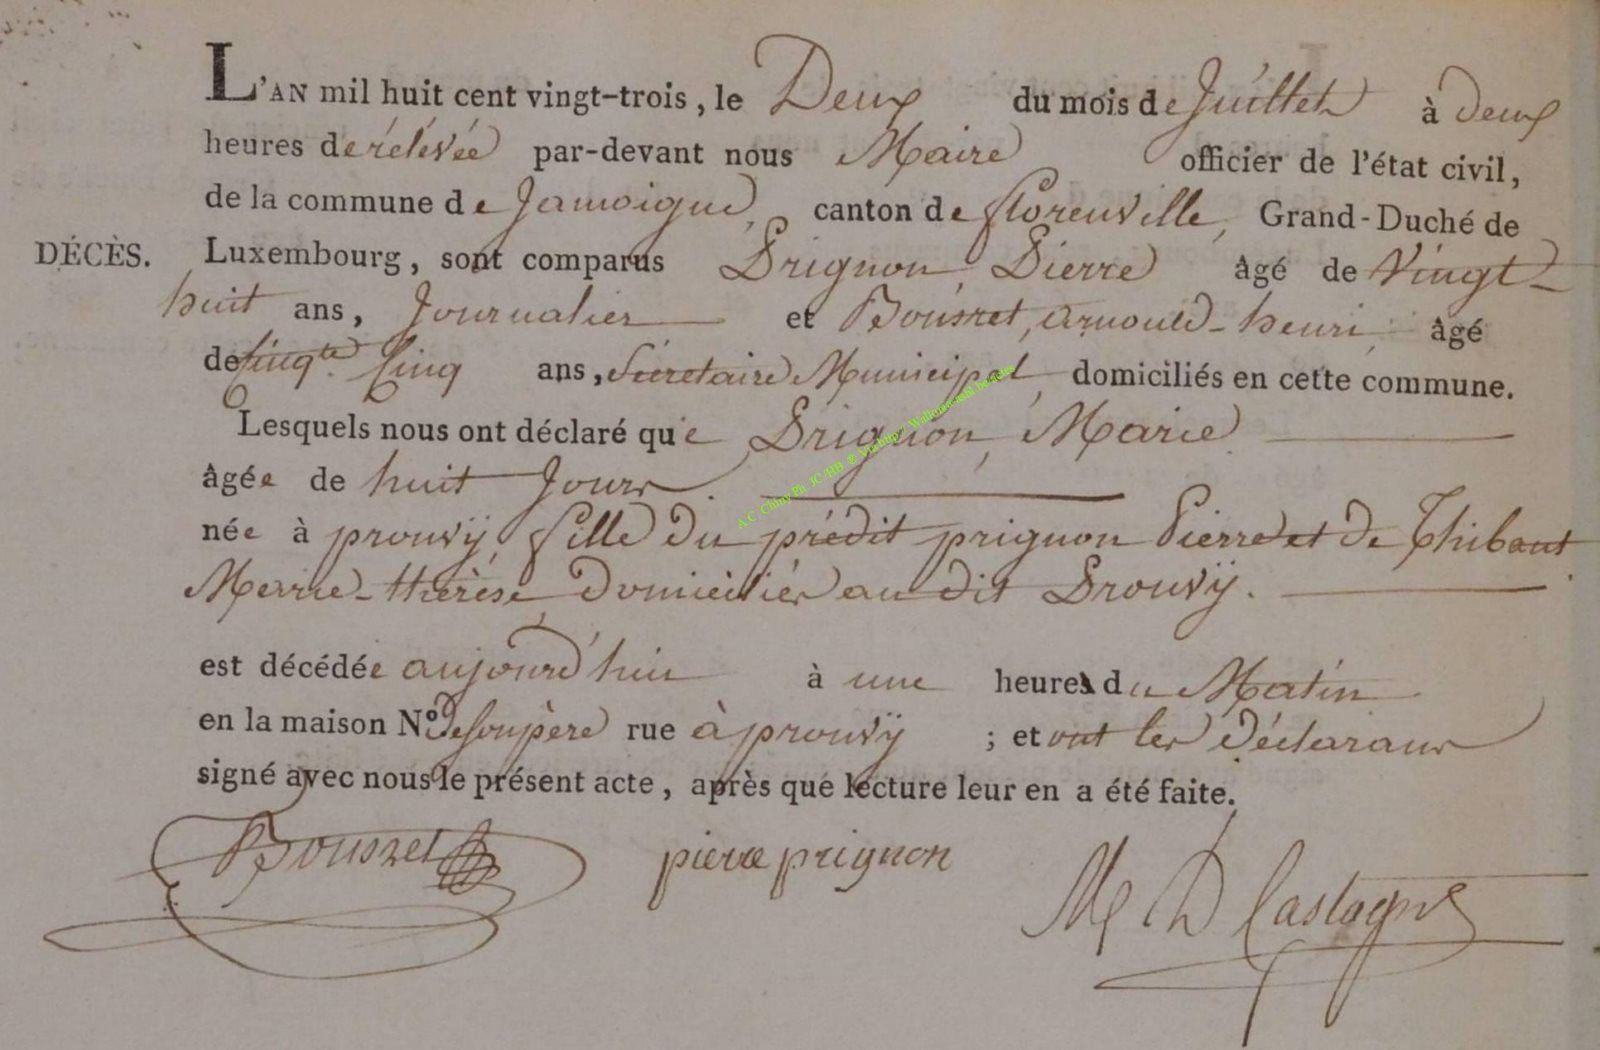 L'AN mil huit cent vingt-trois, le Deux du mois de Juillet à deux
heures de rélévée par-devant nous Maire officier de l'état civil,
de la commune de Jamoigne, canton de florenville, Grand-Duché de
DÉCÈS. Luxembourg, sont comparus Prignon, Pierre âgé de Vingt-
huit ans, Journalier et Bousret, arnould-henri, âgé
de Cinqte Cinq ans, Sécretaire Municipal, domiciliés en cette commune.
Lesquels nous ont déclaré que Prignon, Marie
âgée de huit Jours.
née à prouvÿ, fille du prédit prignon Pierre et de Thibaut
Marie-thérèse, domiciliés au dit Prouvÿ.
est décédée aujourd'hui à une heures du Matin
en la maison N° de son père rue à prouvÿ ; et ont les déclarans
signé avec nous le présent acte, après que lecture leur en a été faite.
Bousret pierre prignon M D Castagne